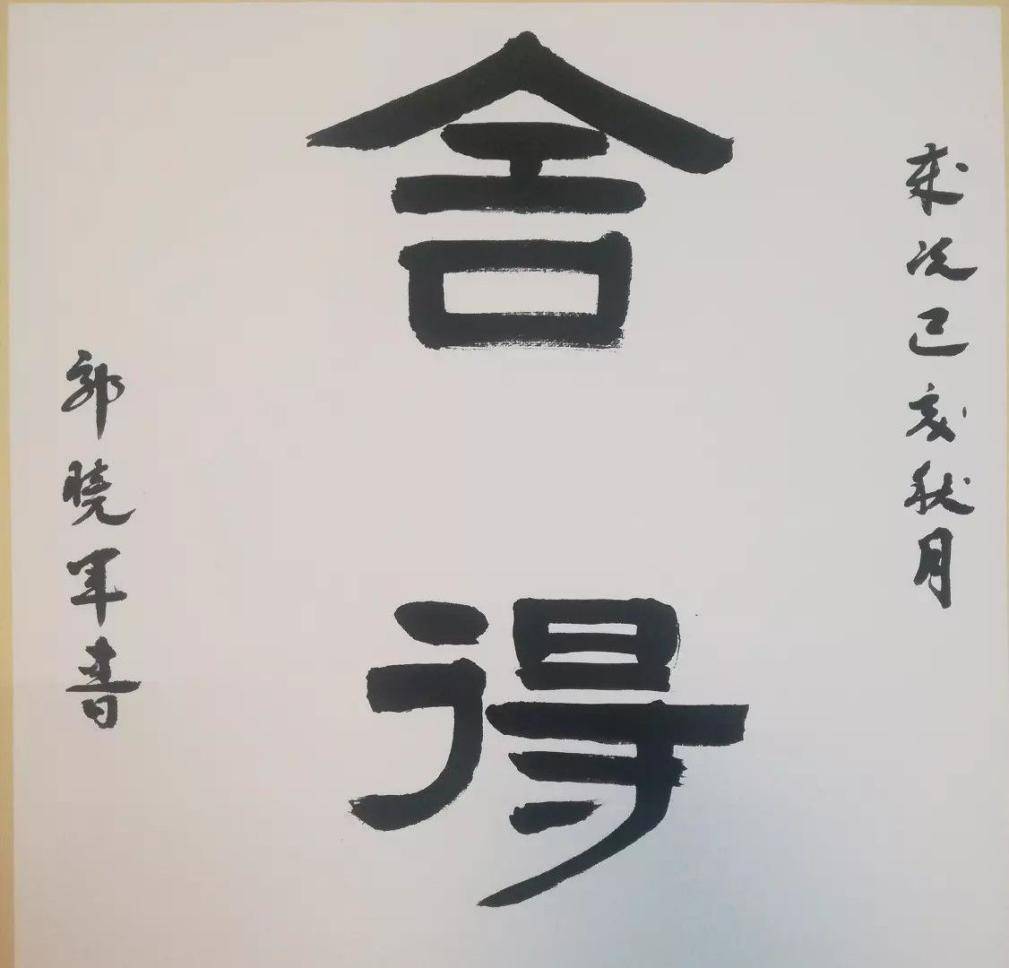 舍得
岁次己亥秋月
郭晓军书